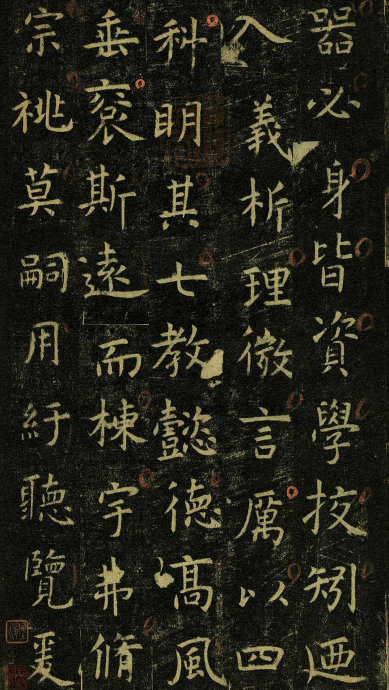 器必身皆資學挍矧廼
入義析理微言厲以四
科明其七教懿德高風
垂裒斯遠而棟宇弗脩
宗祧莫嗣用紆聽覽爰